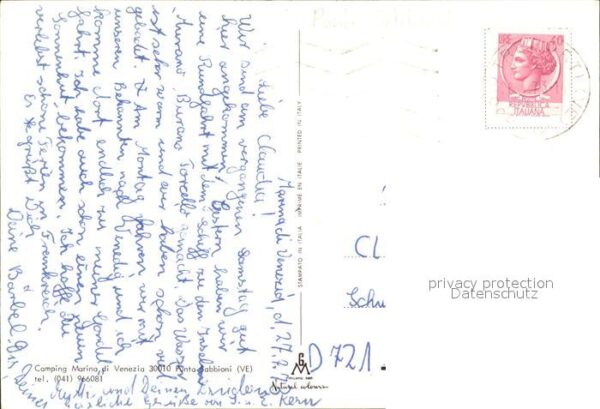 Marina di Venezia, d. 27.7.
Liebe Claudia!
Wir sind am vergangenen Samstag gut
hier angekommen. Gestern haben wir
eine Rundfahrt mit dem Schiff zu den Inseln
Murano, Burano, Torcello gemacht. Das Wasser
ist sehr warm und wir haben schon viel
gebadet. Am Montag fahren wir mit
unseren Bekannten nach Venedig und ich
komme dort endlich zu meiner Gondel-
fahrt. Ich habe auch schon einen
Sonnenhut bekommen. Ich hoffe Du
verlebst schöne Ferien in Frankreich.
Es grüßt Dich
Deine Bärbel
Mutti und Deinen
herzliche Grüße von
Kern
STAMPATO IN ITALIA IMPRIMÉ EN ITALIE PRINTED IN ITALY
40
REPUBBLICA
ITALIANA
CL
Schu
D 721
privacy protection
Datenschutz
Camping Marina di Venezia 30010 Punta Sabbioni (VE)
tel. (041) 966081